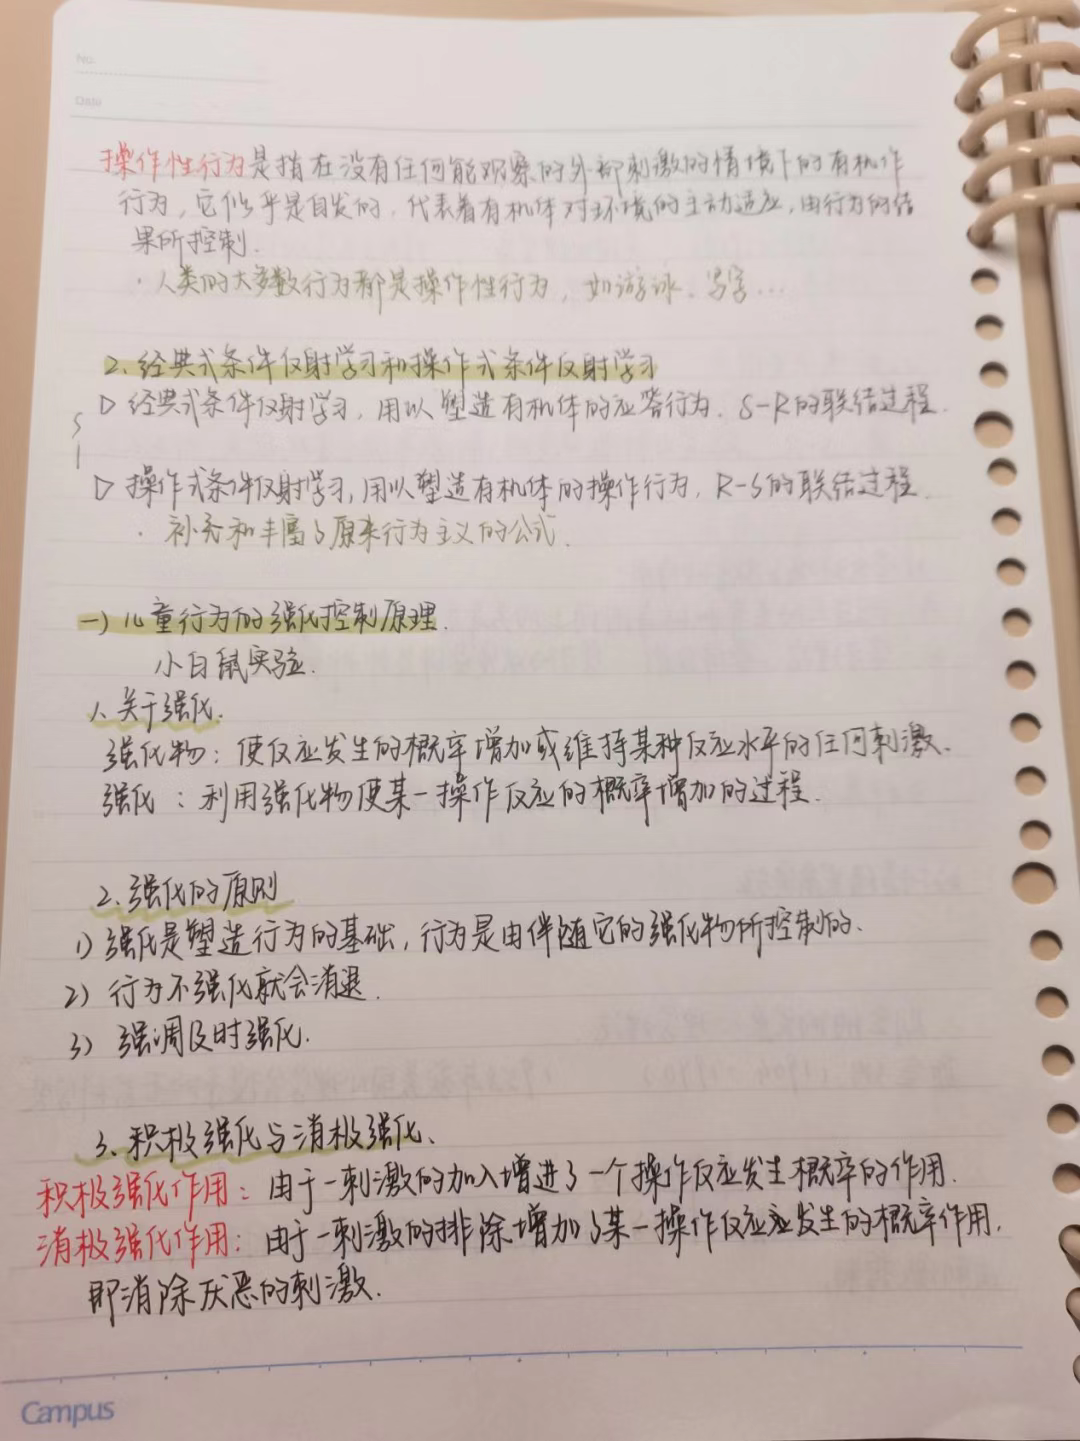 No.
Date
操作性行为是指在没有任何能观察的外部刺激的情境下的有机体
行为，它似乎是自发的，代表着有机体对环境的主动适应，由行为的结
果所控制.
·人类的大多数行为都是操作性行为，如游泳、写字…
2.经典式条件反射学习和操作式条件反射学习
▷ 经典式条件反射学习，用以塑造有机体的应答行为. S-R的联结过程.
▷ 操作式条件反射学习，用以塑造有机体的操作行为，R-S的联结过程.
· 补充和丰富了原来行为主义的公式.
一）儿童行为的强化控制原理.
小白鼠实验.
1.关于强化.
强化物：使反应发生的概率增加或维持某种反应水平的任何刺激.
强化：利用强化物使某一操作反应的概率增加的过程.
2.强化的原则
1) 强化是塑造行为的基础，行为是由伴随它的强化物所控制的.
2) 行为不强化就会消退.
3) 强调及时强化.
3.积极强化与消极强化.
积极强化作用：由于一刺激的加入增进了一个操作反应发生概率的作用.
消极强化作用：由于一刺激的排除增加了某一操作反应应发生的概率作用.
即消除厌恶的刺激.
Campus